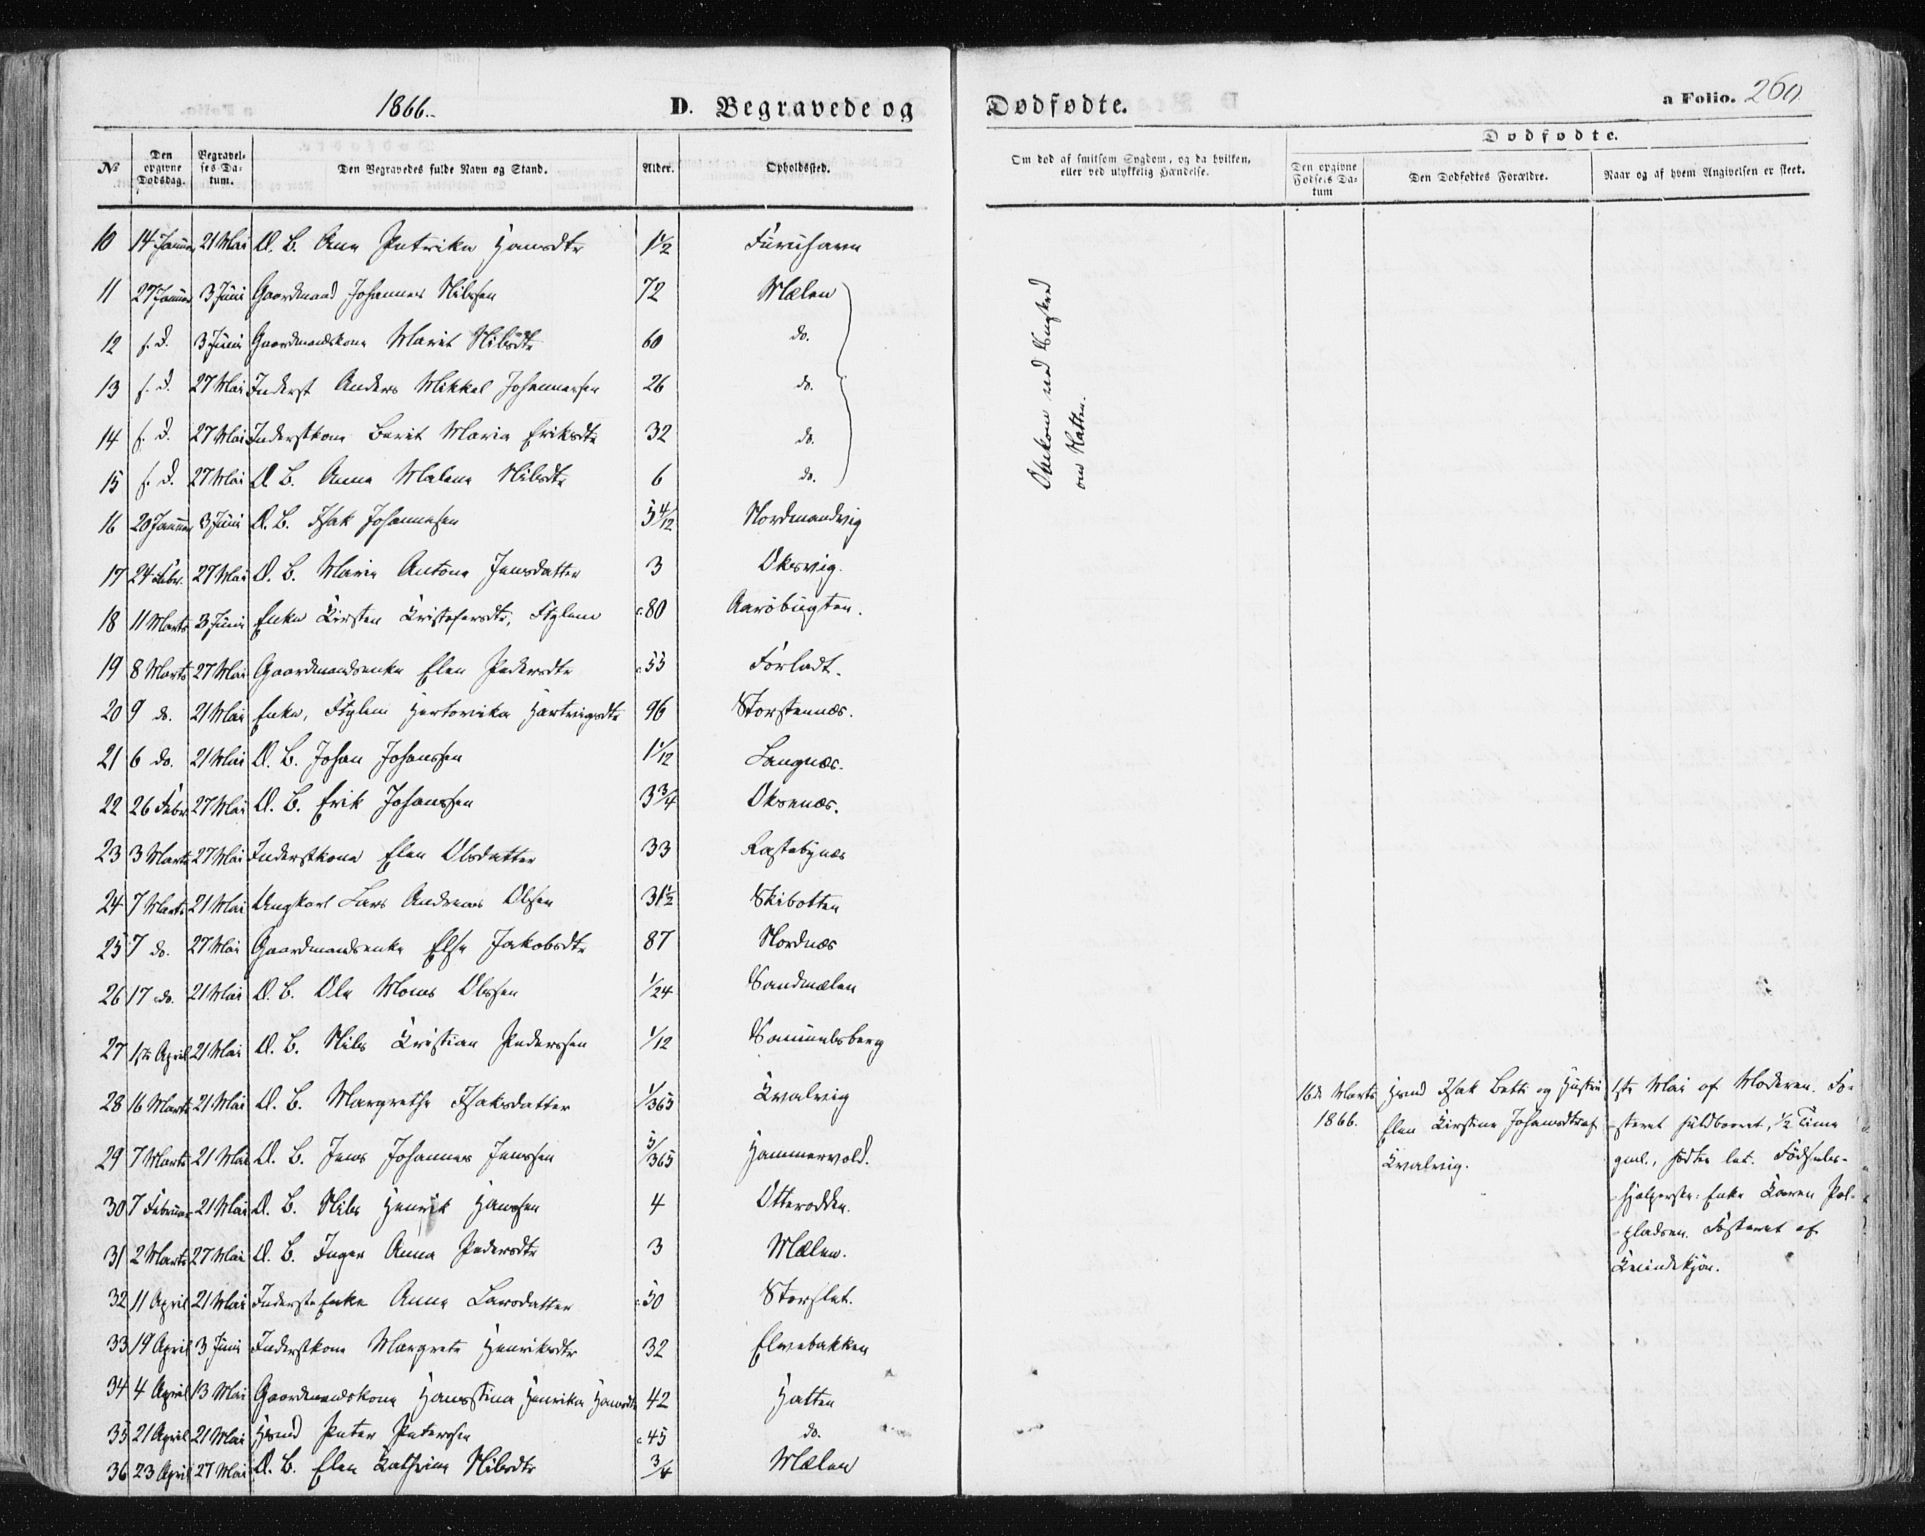 1866.
D. Begravede og
Dødfødte.
a Folio. 260.
No
Den opgivne Dødsdag.
Begravelses Datum.
Den Begravedes fulde Navn og Stand.
Alder.
Opholdssted.
Om død af smitsom Sygdom, og da hvilken, eller ved ulykkelig Hændelse.
Dødfødte.
Den opgivne Fødsels Datum
Den Dødfødtes Forældre.
Naar og af hvem Angivelsen er skeet.
10 14 Januar 21 Mai D. B. Ane Petrika Hansdtr 1½ Furuhavn
11 27 Januar 3 Juni Gaardmand Johannes Nilssen 72 Mælen
12 s. D. 3 Juni Gaardmandskone Marit Nilsdtr 60 do.
13 s. D. 27 Mai Inderst Anders Mikkel Johannessen 26 do.
14 s. D. 27 Mai Inderstkone Berit Maria Eriksdtr 32 do.
15 s. D. 27 Mai D. B. Anna Malena Nilsdtr 6 do.
Omkom ved Sneskred
om Natten.
16 20 Januar 3 Juni D. B. Isak Johannesen 5 4/12 Nordmandvig
17 24 Febr. 27 Mai D. B. Marie Antona Jensdatter 3 Oksvig.
18 11 Marts 3 Juni Enke Kirsten Kristofersdtr, Ftglem c. 80 Aarøbugten.
19 8 Marts 27 Mai Gaardmandsenke Elen Pedersdtr c. 55 Førladt.
20 9 do. 21 Mai Enke, Ftglem Hartvigsdtr 96 Storstennæs.
21 6 do. 21 Mai D. B. Johan Johanssen 1 1/12 Langnæs.
22 26 Febr. 27 Mai D. B. Erik Johanssen 3¾ Oksenæs.
23 3 Marts 27 Mai Inderstkone Elen Olsdatter 33 Rastebynæs
24 7 Marts 21 Mai Ungkarl Lars Andreas Olsen 31½ Skibotten
25 7 do. 27 Mai Gaardmandsenke Else Jakobsdtr 87 Nordnæs
26 17 do. 21 Mai D. B. Ole Mons Olssen 1/24 Sandmælen
27 1ste April 21 Mai D. B. Nils Kristian Pederssen 1/12 Samuelsberg
28 16 Marts 21 Mai D. B. Margrethe Isaksdatter 1/365 Kvalvig
29 7 Marts 21 Mai D. B. Jens Johannes Jenssen 5/365 Hammervold.
30 7 Februar 21 Mai D. B. Nils Henrik Hanssen 4 Otterodden.
31 2 Marts 27 Mai D. B. Inger Anna Pedersdtr 3 Mælen.
32 11 April 21 Mai Inderste Enke Anna Larsdatter c. 50 Storslet.
33 19 April 3 Juni Inderstkone Margrete Henriksdtr 32 Elvebakken
34 4 April 13 Mai Gaardmandskone Hansstina Henrika Hansdtr 42 Hatten
35 21 April 21 Mai Hsmd Peter Peterssen c. 45 do.
36 23 April 27 Mai D. B. Elen Kathrine Nilsdtr ¾ Mælen
16de Marts
1866.
Hsmd Isak Betti og Hustru
Elen Kirstine Johansdtr af
Kvalvig.
1ste Mai af Moderen. Fo-
steret fuldbaaret, ½ Time
gml., fødtes let. Fødsels-
hjælperske: Enke Karen Pal-
pladsen. Fosteret af
Kvindekjøn.